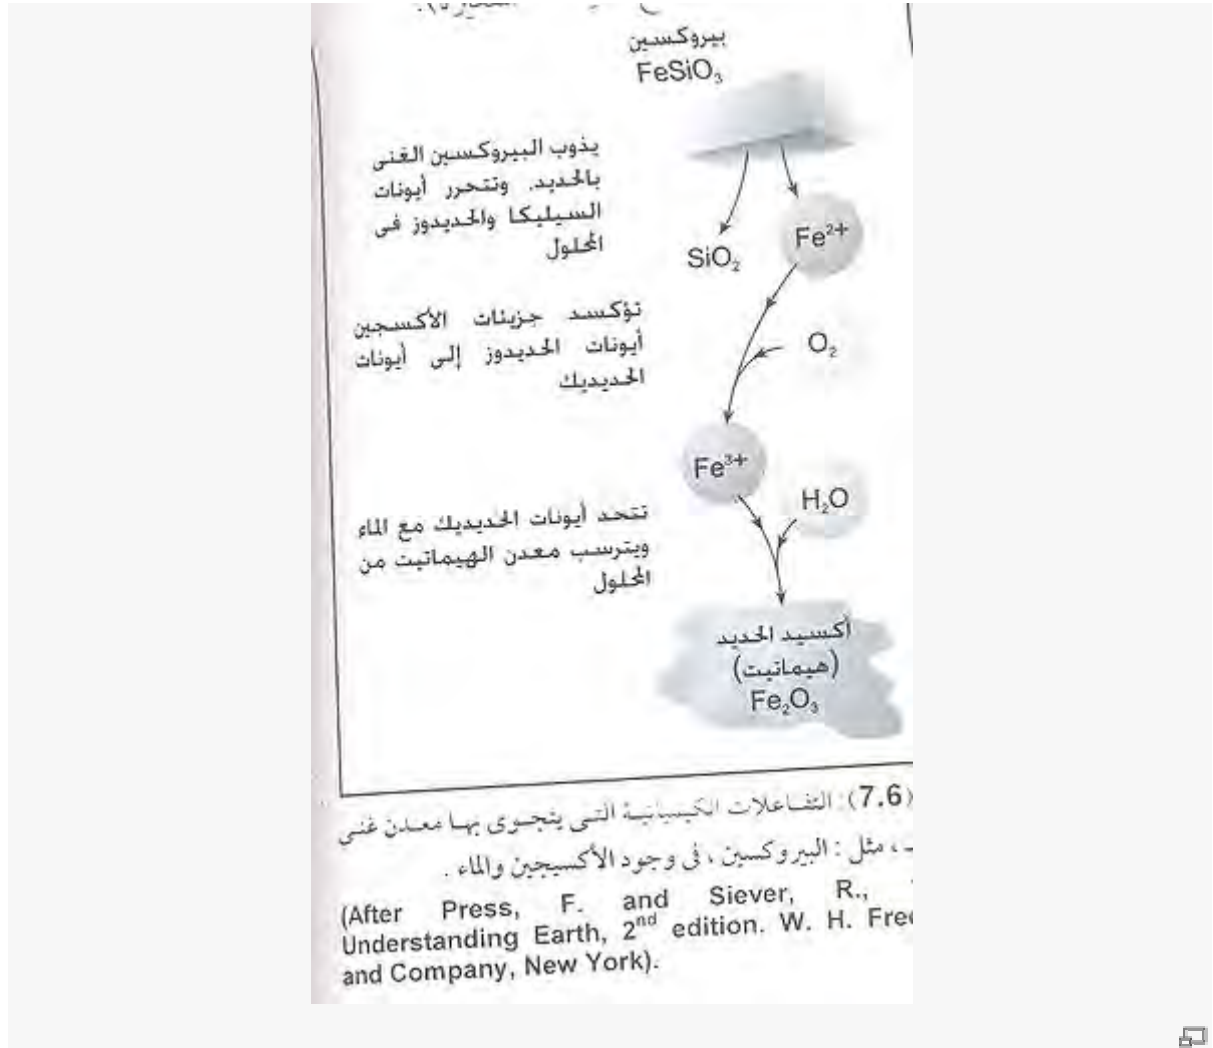 بيروكسين
FeSiO₃
يذوب البيروكسين الغنى
بالحديد. وتتحرر أيونات
السيليكا والحديدوز فى
المحلول
SiO₂
Fe²⁺
تؤكسد جزيئات الأكسجين
أيونات الحديدوز إلى أيونات
الحديديك
O₂
Fe³⁺
H₂O
تتحد أيونات الحديديك مع الماء
ويترسب معدن الهيماتيت من
المحلول
أكسيد الحديد
(هيماتيت)
Fe₂O₃
(7.6): التفاعلات الكيميائية التى يتجوى بها معدن غنى
، مثل : البيروكسين ، فى وجود الأكسيجين والماء .
(After Press, F. and Siever, R.,
Understanding Earth, 2nd edition. W. H. Free
and Company, New York).